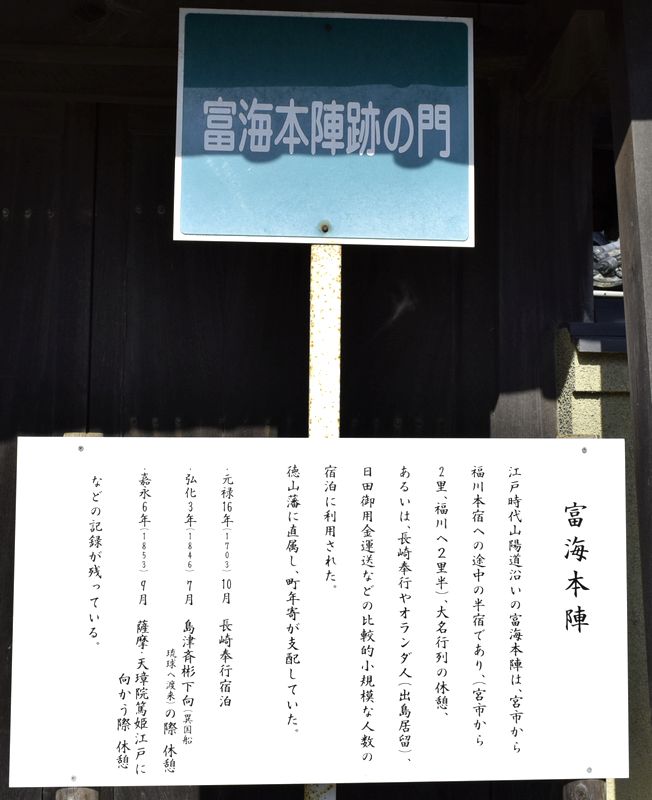 富海本陣跡の門
富海本陣
江戸時代山陽道沿いの富海本陣は、宮市から
福川本宿への途中の半宿であり、(宮市から
2里、福川へ2里半)、大名行列の休憩、
あるいは、長崎奉行やオランダ人(出島居留)、
日田御用金運送などの比較的小規模な人数の
宿泊に利用された。
徳山藩に直属し、町年寄が支配していた。
・元禄16年(1703)10月 長崎奉行宿泊
・弘化3年(1846)7月 島津斉彬下向(異国船
琉球へ渡来)の際 休憩
・嘉永6年(1853)9月 薩摩・天璋院篤姫江戸に
向かう際 休憩
などの記録が残っている。